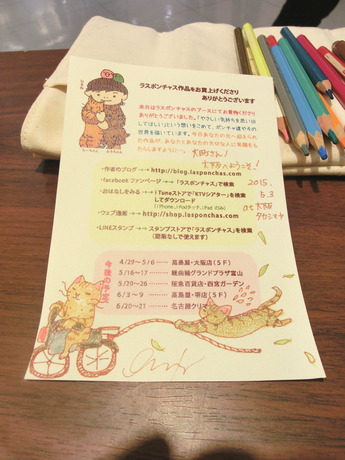 ラスポンチャス作品をお買上げくださり
ありがとうございます
本日はラスポンチャスのブースにてお買物くださり
ありがとうございました。「やさしい気持ちを思い出
してほしい」という想いをこめて、ポンチャ達やその
世界を描いています。今日あなたの元へ迎えられ
た作品が、あなたとあなたの大切な人に笑顔をも
たらしますように…。
大阪へようこそ!
・作者のブログ →→ http://blog.lasponchas.com
・facebook ファンページ→→「ラスポンチャス」で検索
・おはなしをみる→→ iTuneストアで「KTVシアター」を検索
してダウンロード
(iPhone,iPadタッチ,iPad のみ)
・ウェブ通販→→ http://shop.lasponchas.com
・LINEスタンプ→→ スタンプストアで「ラスポンチャス」を検索
(間隔なしで使えます)
2015.
5.3
at 大阪
タカシマヤ
今後の予定
4/29〜5/6 …… 髙島屋・大阪店(5F)
5/16〜17 …… 総曲輪グランドプラザ富山
5/29〜26 …… 阪急百貨店・西宮ガーデン
6/3〜9 …… 髙島屋・堺店(5F)
6/20〜21 …… 名古屋クリ